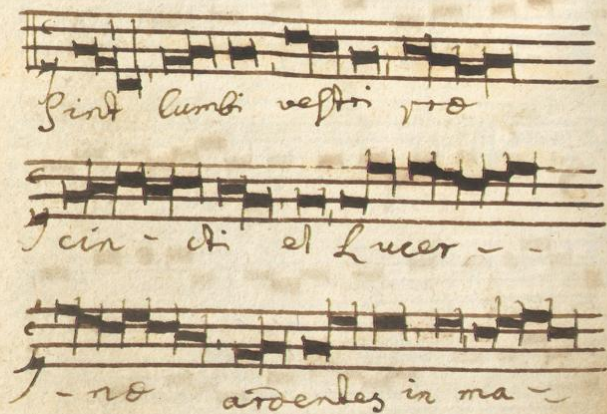 Sint lumbi vestri præ
cin - cti et Lucer - -
- næ ardentes in ma - -